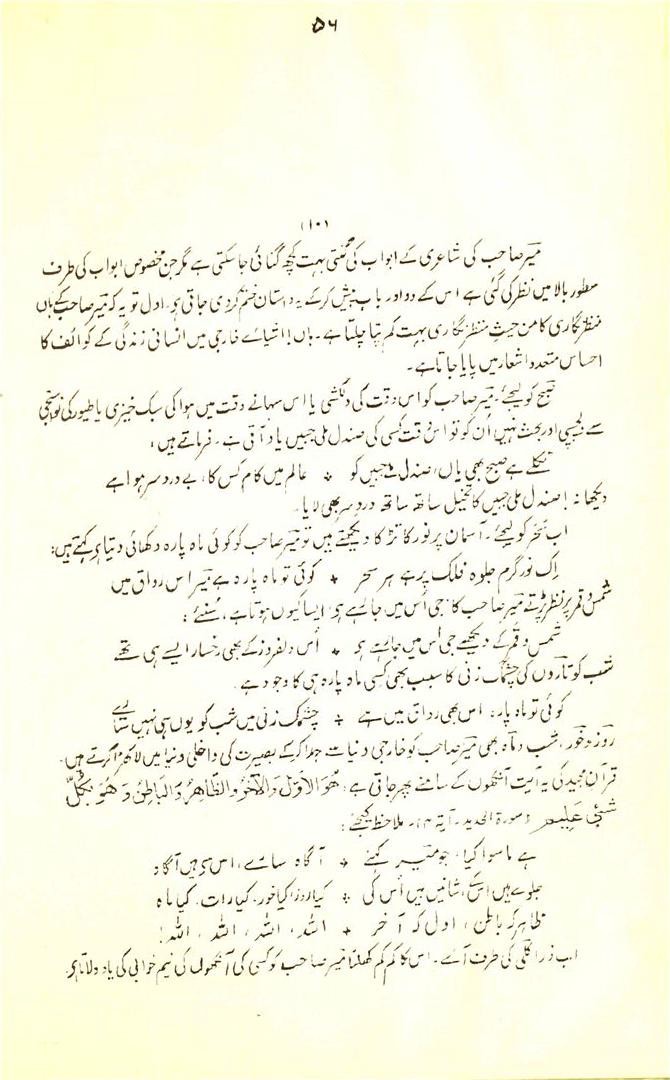 ۵۶
(۱۰)
میرؔ صاحب کی شاعری کے ابواب کی گنتی بہت کچھ گنائی جاسکتی ہے مگر جن مخصوص ابواب کی طرف
سطور بالا میں نظر کی گئی ہے اس کے دو اور باب پیش کرکے یہ داستان ختم کردی جاتی ہے، اول تو یہ کہ میرؔ صاحب کے ہاں
منظر نگاری کا من حیث منظر نگاری بہت کم پتا چلتا ہے۔ ہاں! اشیائے خارجی میں انسانی زندگی کے کوائف کا
احساس متعدد اشعار میں پایا جاتا ہے۔
صبح کو لیجئے۔ میرؔ صاحب کو اس وقت کی دلکشی یا اس سہانے وقت میں ہوا کی سبک خیزی یا طیور کی نواسنجی
سے دلچسپی اور بحث نہیں اُن کو تو اس وقت کسی کی صندل ملی جبیں یاد آتی ہے۔ فرماتے ہیں:
نکلے ہے صبح بھی یاں، صندل ملے جبیں کو ٭ عالم میں کام کس کا، بے درد سر ہوا ہے
دیکھا نہ! صندل ملی جبیں کا تخیل ساتھ ساتھ درد سر بھی لایا۔
اب سحر کو لیجئے۔ آسمان پر نور کا تڑکا دیکھتے ہیں تو میرؔ صاحب کو کوئی ماہ پارہ دکھائی دیتا ہے کہتے ہیں:
اِک نور گرم جلوہ فلک پر ہے ہر سحر ٭ کوئی تو ماہ پارہ ہے میرؔ اس رواق میں
شمس و قمر پر نظر پڑتے میرؔ صاحب کا "جی اُس میں جا رہے ہے" ایسا کیوں ہوتا ہے، سُنئے:
شمس و قمر کے دیکھے جی اُس میں جا رہے ہے ٭ اُس دلفروز کے بھی رخسار ایسے ہی تھے
شب کو تاروں کی چشمک زنی کا سبب بھی کسی ماہ پارہ ہی کا وجود ہے۔
کوئی تو ماہ پارہ، اس بھی رواق میں ہے ٭ چشمک زنی میں شب کو یوں ہی نہیں ستارے
روز و خور، شب و ماہ بھی میرؔ صاحب کو خارجی دنیا سے جدا کرکے بصیرت کی داخلی دنیا میں لا کھڑا کرتے ہیں۔
قرآن مجید کی یہ آیت آنکھوں کے سامنے پھر جاتی ہے: هُوَ الْاَوَّلُ وَالْاٰخِرُ وَالظَّاهِرُ وَالْبَاطِنُ وَهُوَ بِكُلِّ
شَيْئٍ عَلِيْم (سورۃ الحدید۔ آیۃ ۳)۔ ملاحظہ کیجئے:
ہے ماسوا کیا، جو میرؔ کہئے ٭ آگاہ سارے، اس سے ہیں آگاہ
جلوے ہیں اسکے، شانیں ہیں اُس کی ٭ کیا روز، کیا خور، کیا رات، کیا ماہ
ظاہر کہ باطن، اول کہ آخر ٭ اللہ، اللہ، اللہ، اللہ!
اب ذرا کلی کی طرف آئے۔ اس کا کم کم کھلنا میرؔ صاحب کو کسی کی آنکھوں کی نیم خوابی کی یاد دلاتا ہے۔